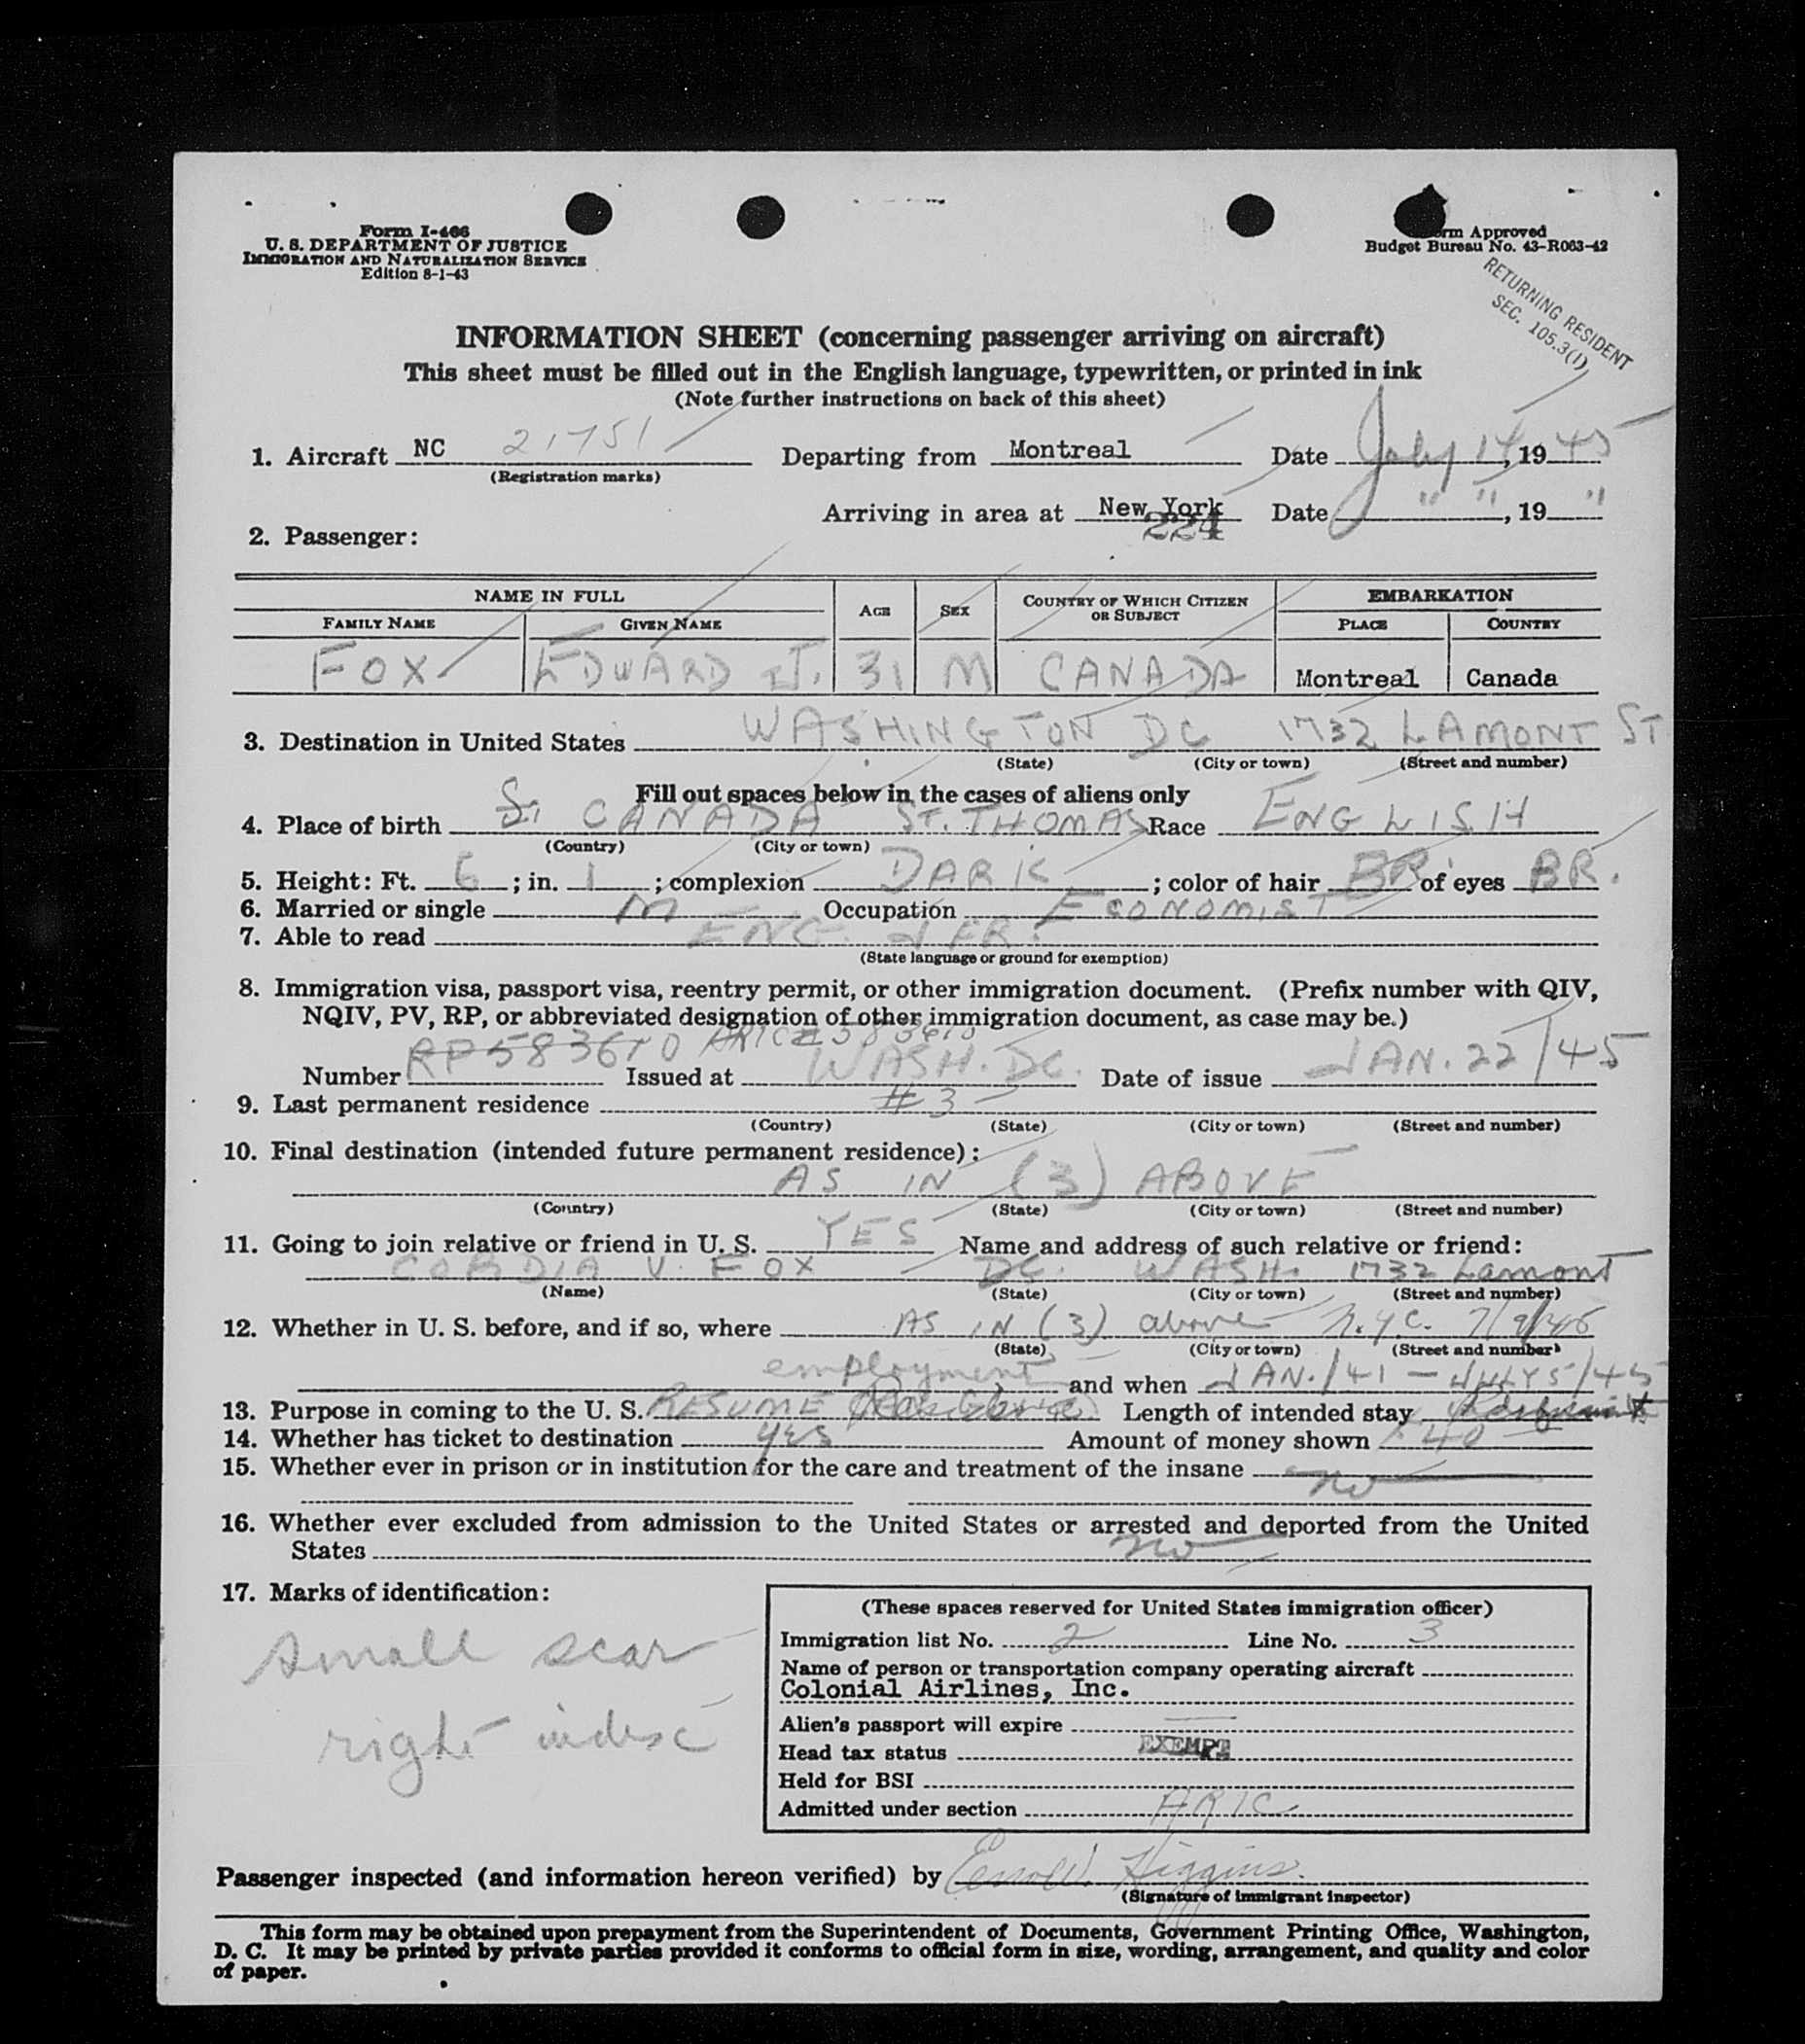 Form I-466
U. S. DEPARTMENT OF JUSTICE
IMMIGRATION AND NATURALIZATION SERVICE
Edition 8-1-43
Form Approved
Budget Bureau No. 43-R063-42
RETURNING RESIDENT
SEC. 105.3(1)
INFORMATION SHEET (concerning passenger arriving on aircraft)
This sheet must be filled out in the English language, typewritten, or printed in ink
(Note further instructions on back of this sheet)
1. Aircraft NC 21751 Departing from Montreal Date July 14, 1945
(Registration marks)
Arriving in area at New York Date " ", 19 "
224
2. Passenger:
NAME IN FULL AGE SEX COUNTRY OF WHICH CITIZEN OR SUBJECT EMBARKATION
FAMILY NAME GIVEN NAME PLACE COUNTRY
FOX EDWARD J. 31 M CANADA Montreal Canada
3. Destination in United States WASHINGTON DC 1732 LAMONT ST
(State) (City or town) (Street and number)
Fill out spaces below in the cases of aliens only
4. Place of birth CANADA ST. THOMAS Race ENGLISH
(Country) (City or town)
5. Height: Ft. 6; in. 1; complexion DARK; color of hair BR. of eyes BR.
6. Married or single M Occupation ECONOMIST
7. Able to read ENG. & FR.
(State language or ground for exemption)
8. Immigration visa, passport visa, reentry permit, or other immigration document. (Prefix number with QIV,
NQIV, PV, RP, or abbreviated designation of other immigration document, as case may be.)
ARIC# 583610
Number RP 583610 Issued at WASH. DC. Date of issue JAN. 22/45
9. Last permanent residence #3
(Country) (State) (City or town) (Street and number)
10. Final destination (intended future permanent residence):
AS IN (3) ABOVE
(Country) (State) (City or town) (Street and number)
11. Going to join relative or friend in U. S. YES Name and address of such relative or friend:
CORDIA V. FOX DC. WASH. 1732 Lamont
(Name) (State) (City or town) (Street and number)
12. Whether in U. S. before, and if so, where AS IN (3) above N.Y.C. 7/9/45
(State) (City or town) (Street and number)
employment and when JAN./41 - JULY 5/45
13. Purpose in coming to the U. S. RESUME (Residence) Length of intended stay
14. Whether has ticket to destination yes Amount of money shown 40
15. Whether ever in prison or in institution for the care and treatment of the insane no
16. Whether ever excluded from admission to the United States or arrested and deported from the United
States no
17. Marks of identification:
small scar
right index
(These spaces reserved for United States immigration officer)
Immigration list No. 2 Line No. 3
Name of person or transportation company operating aircraft
Colonial Airlines, Inc.
Alien's passport will expire
Head tax status EXEMPT
Held for BSI
Admitted under section ARIC
Passenger inspected (and information hereon verified) by Higgins
(Signature of immigrant inspector)
This form may be obtained upon prepayment from the Superintendent of Documents, Government Printing Office, Washington,
D. C. It may be printed by private parties provided it conforms to official form in size, wording, arrangement, and quality and color
of paper.